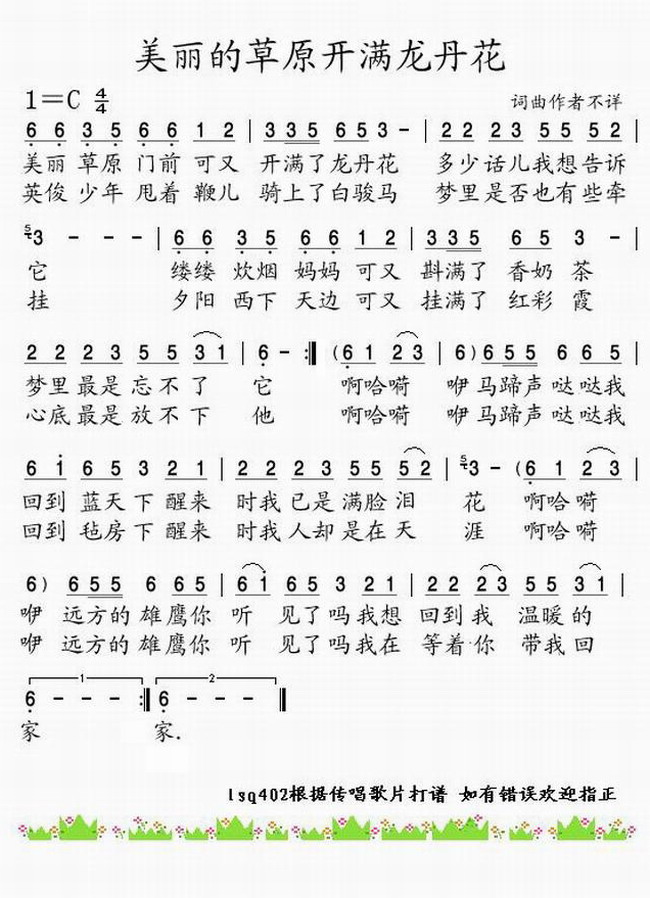 美丽的草原开满龙丹花
1=C 4/4 词曲作者不详
6 6 3 5 6 6 1 2 | 3 3 5 6 5 3 - | 2 2 2 3 5 5 5 2 |
美丽草原门前可又 开满了龙丹花 多少话儿我想告诉
英俊少年甩着鞭儿 骑上了白骏马 梦里是否也有些牵
5 3 - - - | 6 6 3 5 6 6 1 2 | 3 3 5 6 5 3 - |
它 缕缕炊烟妈妈可又 斟满了香奶茶
挂 夕阳西下天边可又 挂满了红彩霞
2 2 2 3 5 5 3 1 | 6 - :‖ (6 1 2 3 | 6) 6 5 5 6 6 5 |
梦里最是忘不了 它 啊哈嗬 咿马蹄声哒哒我
心底最是放不下 他 啊哈嗬 咿马蹄声哒哒我
6 1 6 5 3 2 1 | 2 2 2 3 5 5 5 2 | 5 3 - (6 1 2 3 |
回到蓝天下醒来 时我已是满脸泪 花 啊哈嗬
回到毡房下醒来 时我人却是在天 涯 啊哈嗬
6) 6 5 5 6 6 5 | 6 1 6 5 5 3 2 1 | 2 2 2 3 5 5 3 1 |
咿 远方的雄鹰你 听 见了吗我想 回到我 温暖的
咿 远方的雄鹰你 听 见了吗我在 等着你 带我回
1 2
6 - - - :‖ 6 - - - ‖
家 家.
lsq402根据传唱歌片打谱 如有错误欢迎指正